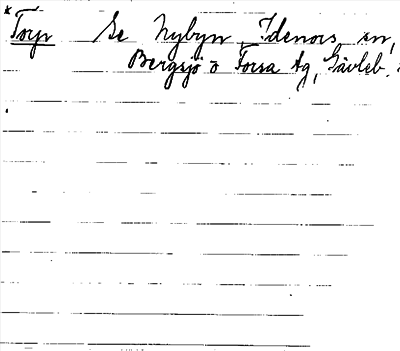 * Toryn Se Nybyn, Idenors sn,
Bergsjö o Forsa tg, Gävleb.